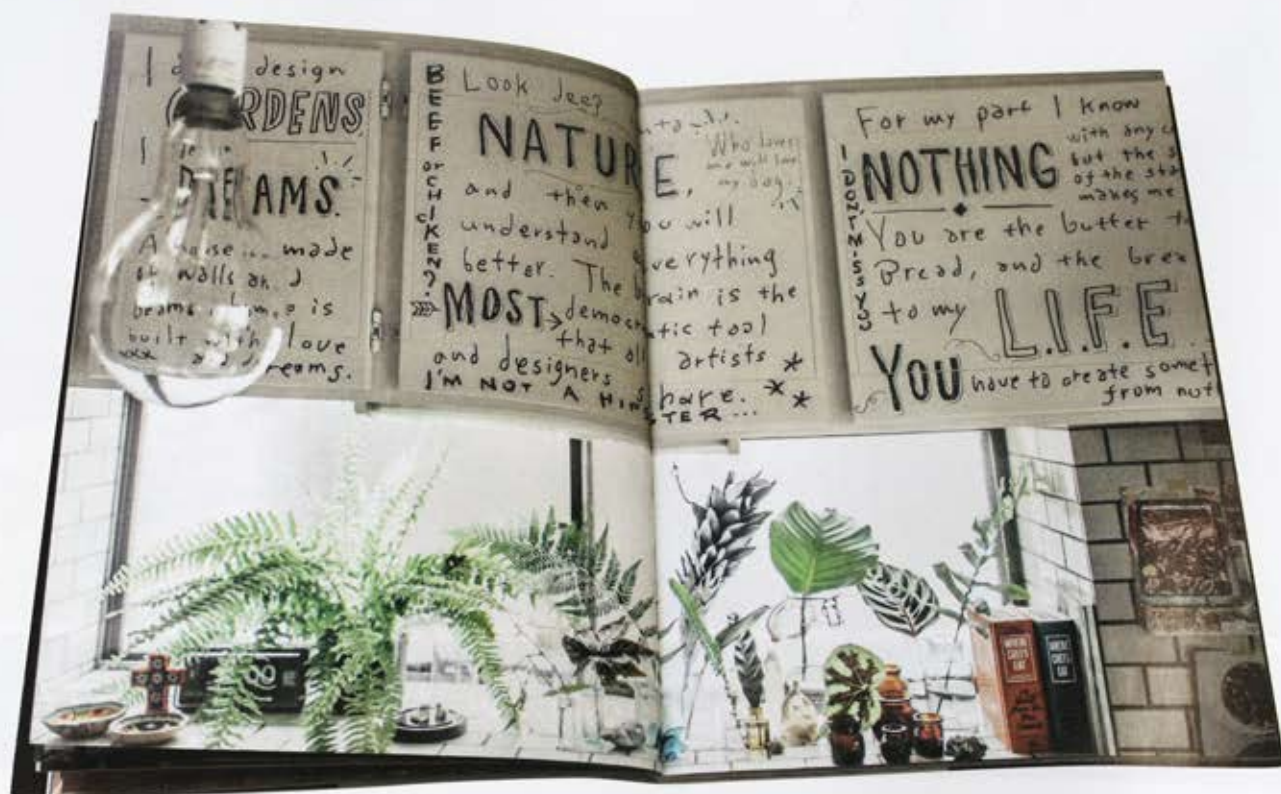 I design
GARDENS
I
DREAMS.
A house is made
of walls and
beams a home is
built with love
and dreams.
BEEF or CHICKEN?
Look deep
NATURE,
and then you will
understand everything
better. The brain is the
MOST democratic tool
that all artists
and designers share.
I'M NOT A HIPSTER...
Who loves
me will love
my dog.
I DON'T MISS YOU
For my part I know
NOTHING
with any
but the
of the
makes me
You are the butter
Bread, and the
to my L.I.F.E
YOU have to create
from
WHERE
CHEFS
EAT
WHERE
CHEFS
EAT